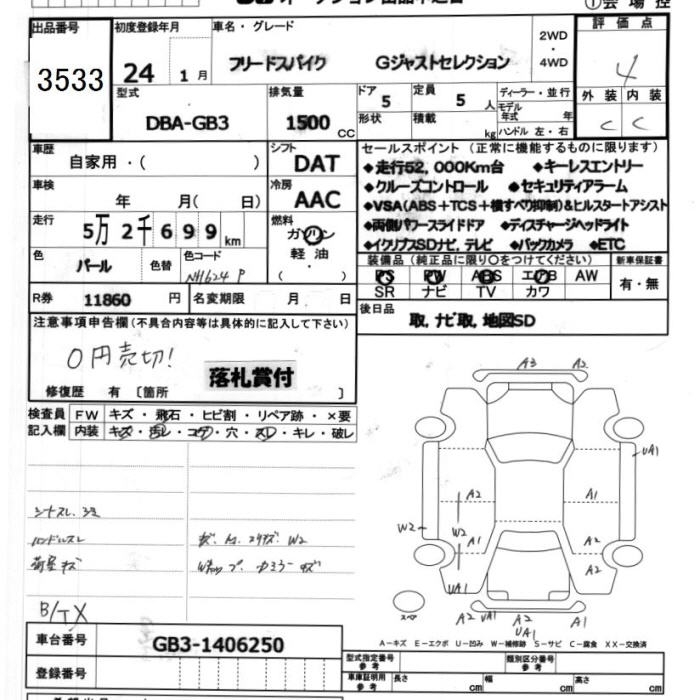 ①会場控
出品番号
3533
初度登録年月
24 1月
車名・グレード
フリードスパイク Gジャストセレクション
2WD
・
4WD
評価点
4
外装 内装
C C
型式
DBA-GB3
排気量
1500 CC
ドア
5
定員
5 人
形状
積載
kg
ディーラー・並行
モデル
年式 年
ハンドル 左・右
車歴
自家用・( )
シフト
DAT
車検
年 月( 日)
冷房
AAC
走行
5万2千699km
燃料
ガソリン
軽油
・( )
色
パール
色替
色コード
NH624P
R券
11860 円
名変期限 月 日
セールスポイント(正常に機能するものに限ります)
◆走行52,000Km台 ◆キーレスエントリー
◆クルーズコントロール ◆セキュリティアラーム
◆VSA(ABS+TCS+横すべり抑制)&ヒルスタートアシスト
◆両側パワースライドドア ◆ディスチャージヘッドライト
◆イクリプスSDナビ,テレビ ◆バックカメラ ◆ETC
装備品(純正品に限り○をつけてください)
PS PW ABS エアB AW
SR ナビ TV カワ
新車保証書
有・無
後日品
取,ナビ取,地図SD
注意事項申告欄(不具合内容等は具体的に記入して下さい)
0円売切!
落札賞付
修復歴 有〔箇所 〕
検査員
記入欄
FW キズ・飛石・ヒビ割・リペア跡・×要
内装 キズ・汚レ・コゲ・穴・スレ・キレ・破レ
シートスレ
ハンドルスレ
荷室キズ
B/TX
A3 A2
UA1
A2 A1
W2 W2
A1 A2
A2
UA1
スペア
A2 UA1 A1
UA1
A-キズ E-エクボ U-凹み W-補修跡 S-サビ C-腐食 XX-交換済
車台番号
GB3-1406250
登録番号
型式指定番号
参考
類別区分番号
参考
車庫証明用
参考
長さ cm 幅 cm 高さ cm